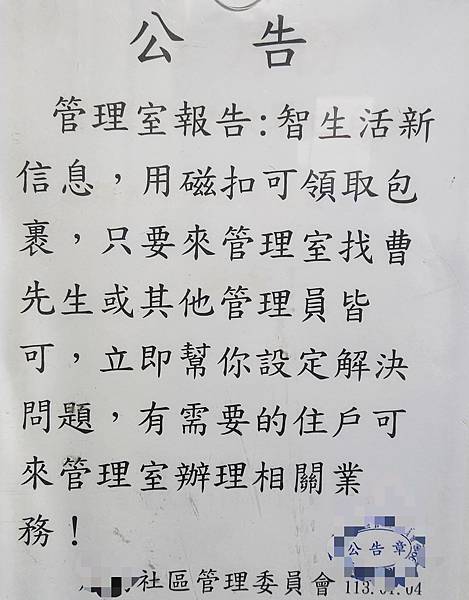 公告
管理室報告:智生活新
信息，用磁扣可領取包
裹，只要來管理室找曹
先生或其他管理員皆
可，立即幫你設定解決
問題，有需要的住戶可
來管理室辦理相關業
務！
公告章
社區管理委員會 113.01.04